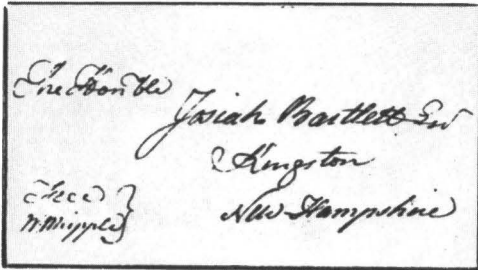 The Honble
Josiah Bartlett Esqr
Kingston
New Hampshire
Free
Wm Whipple